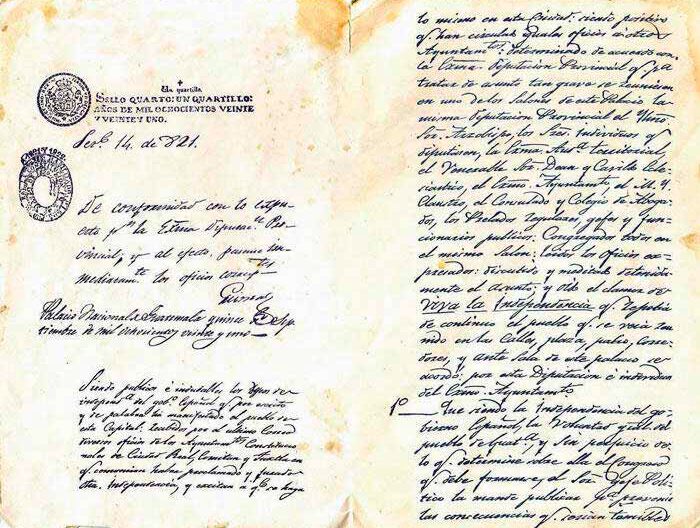 Un quartillo
SELLO QUARTO: UN QUARTILLO:
AÑOS DE MIL OCHOCIENTOS VEINTE
Y VEINTE Y UNO.
14 de 821.
De conformidad con lo expu
esto pr. la Exma Diputac. Pro
vincial; y al efecto, pasense in
mediatamte. los oficios correspntes.
Palacio Nacional de Guatemala quince de Sep
tiembre de mil ochocientos veinte y uno
Siendo publicos e indudables los deseos de
independa. del gobo. Español qe. por escrito
y de palabra ha manifestado el pueblo de
esta Capital: recibidos por el ultimo Correo
diversos oficios de los Ayuntamtos. Constitucio
nales de Ciudad Real, Comitan y Tuxtla en
qe. comunican haber proclamado y jurado
dha. Independencia, y excitan a qe. se haga
lo mismo en esta Ciudad: siendo positivo
qe. han circulado iguales oficios a otros
Ayuntamtos.: determinado de acuerdo con
la Exma. Diputacion Provincial qe. pa.
tratar de asunto tan grave se reuniesen
en uno de los Salones de este Palacio la
misma Diputacion Provincial el Illmo.
Sor. Arzobispo, los Sres. Individuos qe.
diputasen, la Exma. Auda. territorial,
el Venerable Sor. Dean y Cavildo Ecle-
siastico, el Exmo. Ayuntamto., el M. Y.
Claustro, el Consulado y Colegio de Aboga-
dos, los Prelados regulares, gefes y fun-
cionarios publicos: Congregados todos en
el mismo Salon: leidos los oficios ex-
presados: discutido y meditado detenida-
mente el asunto; y oido el clamor de
Viva la Independencia qe. repetia
de continuo el pueblo qe. se veia reu-
nido en las Calles, plaza, patio, corre-
dores, y ante Sala de este palacio se
acordó: por esta Diputacion e individuos
del Exmo. Ayuntamto.
1o. Que siendo la Independencia del go-
bierno Español, la Voluntad gral. del
pueblo de Guata., y sin perjuicio de
lo qe. determine sobre ella el Congreso
qe. debe formarse, el Sor. Gefe Poli-
tico la mande publicar pa. prevenir
las consecuencias qe. serian temibles